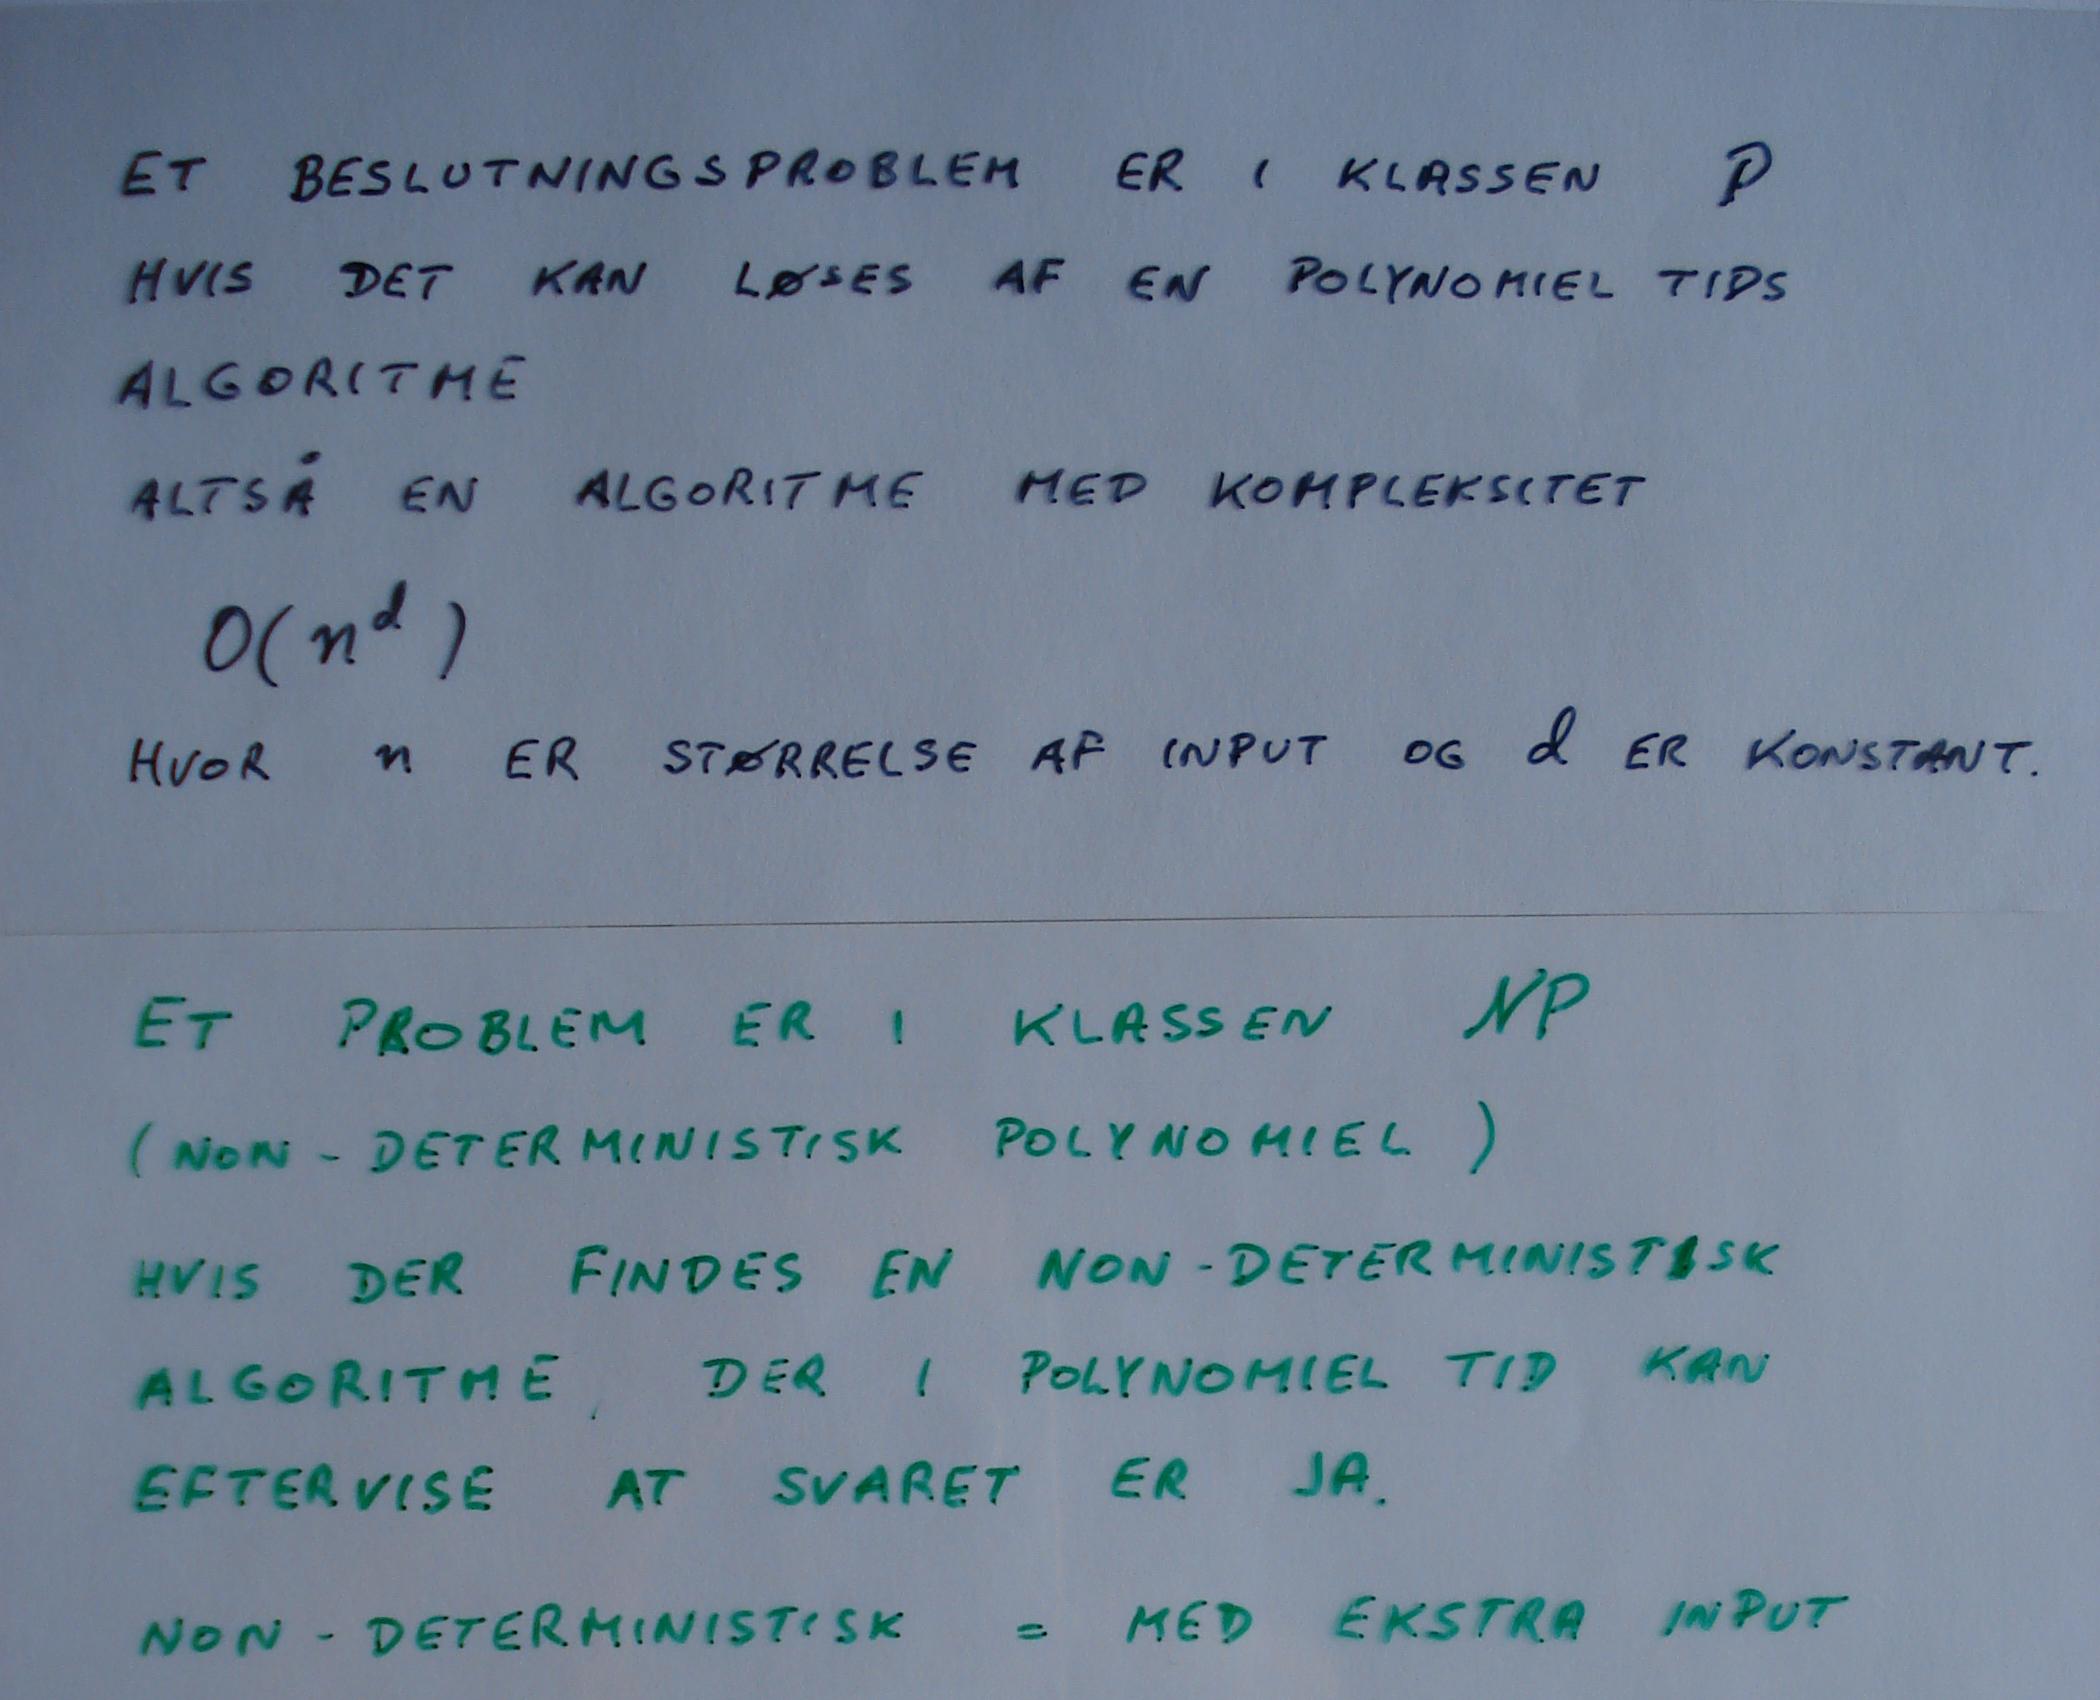 ET BESLUTNINGSPROBLEM ER I KLASSEN P
HVIS DET KAN LØSES AF EN POLYNOMIEL TIDS
ALGORITME
ALTSÅ EN ALGORITME MED KOMPLEKSITET
O(n^d)
HVOR n ER STØRRELSE AF INPUT OG d ER KONSTANT.
ET PROBLEM ER I KLASSEN NP
(NON-DETERMINISTISK POLYNOMIEL)
HVIS DER FINDES EN NON-DETERMINISTISK
ALGORITME, DER I POLYNOMIEL TID KAN
EFTERVISE AT SVARET ER JA.
NON-DETERMINISTISK = MED EKSTRA INPUT